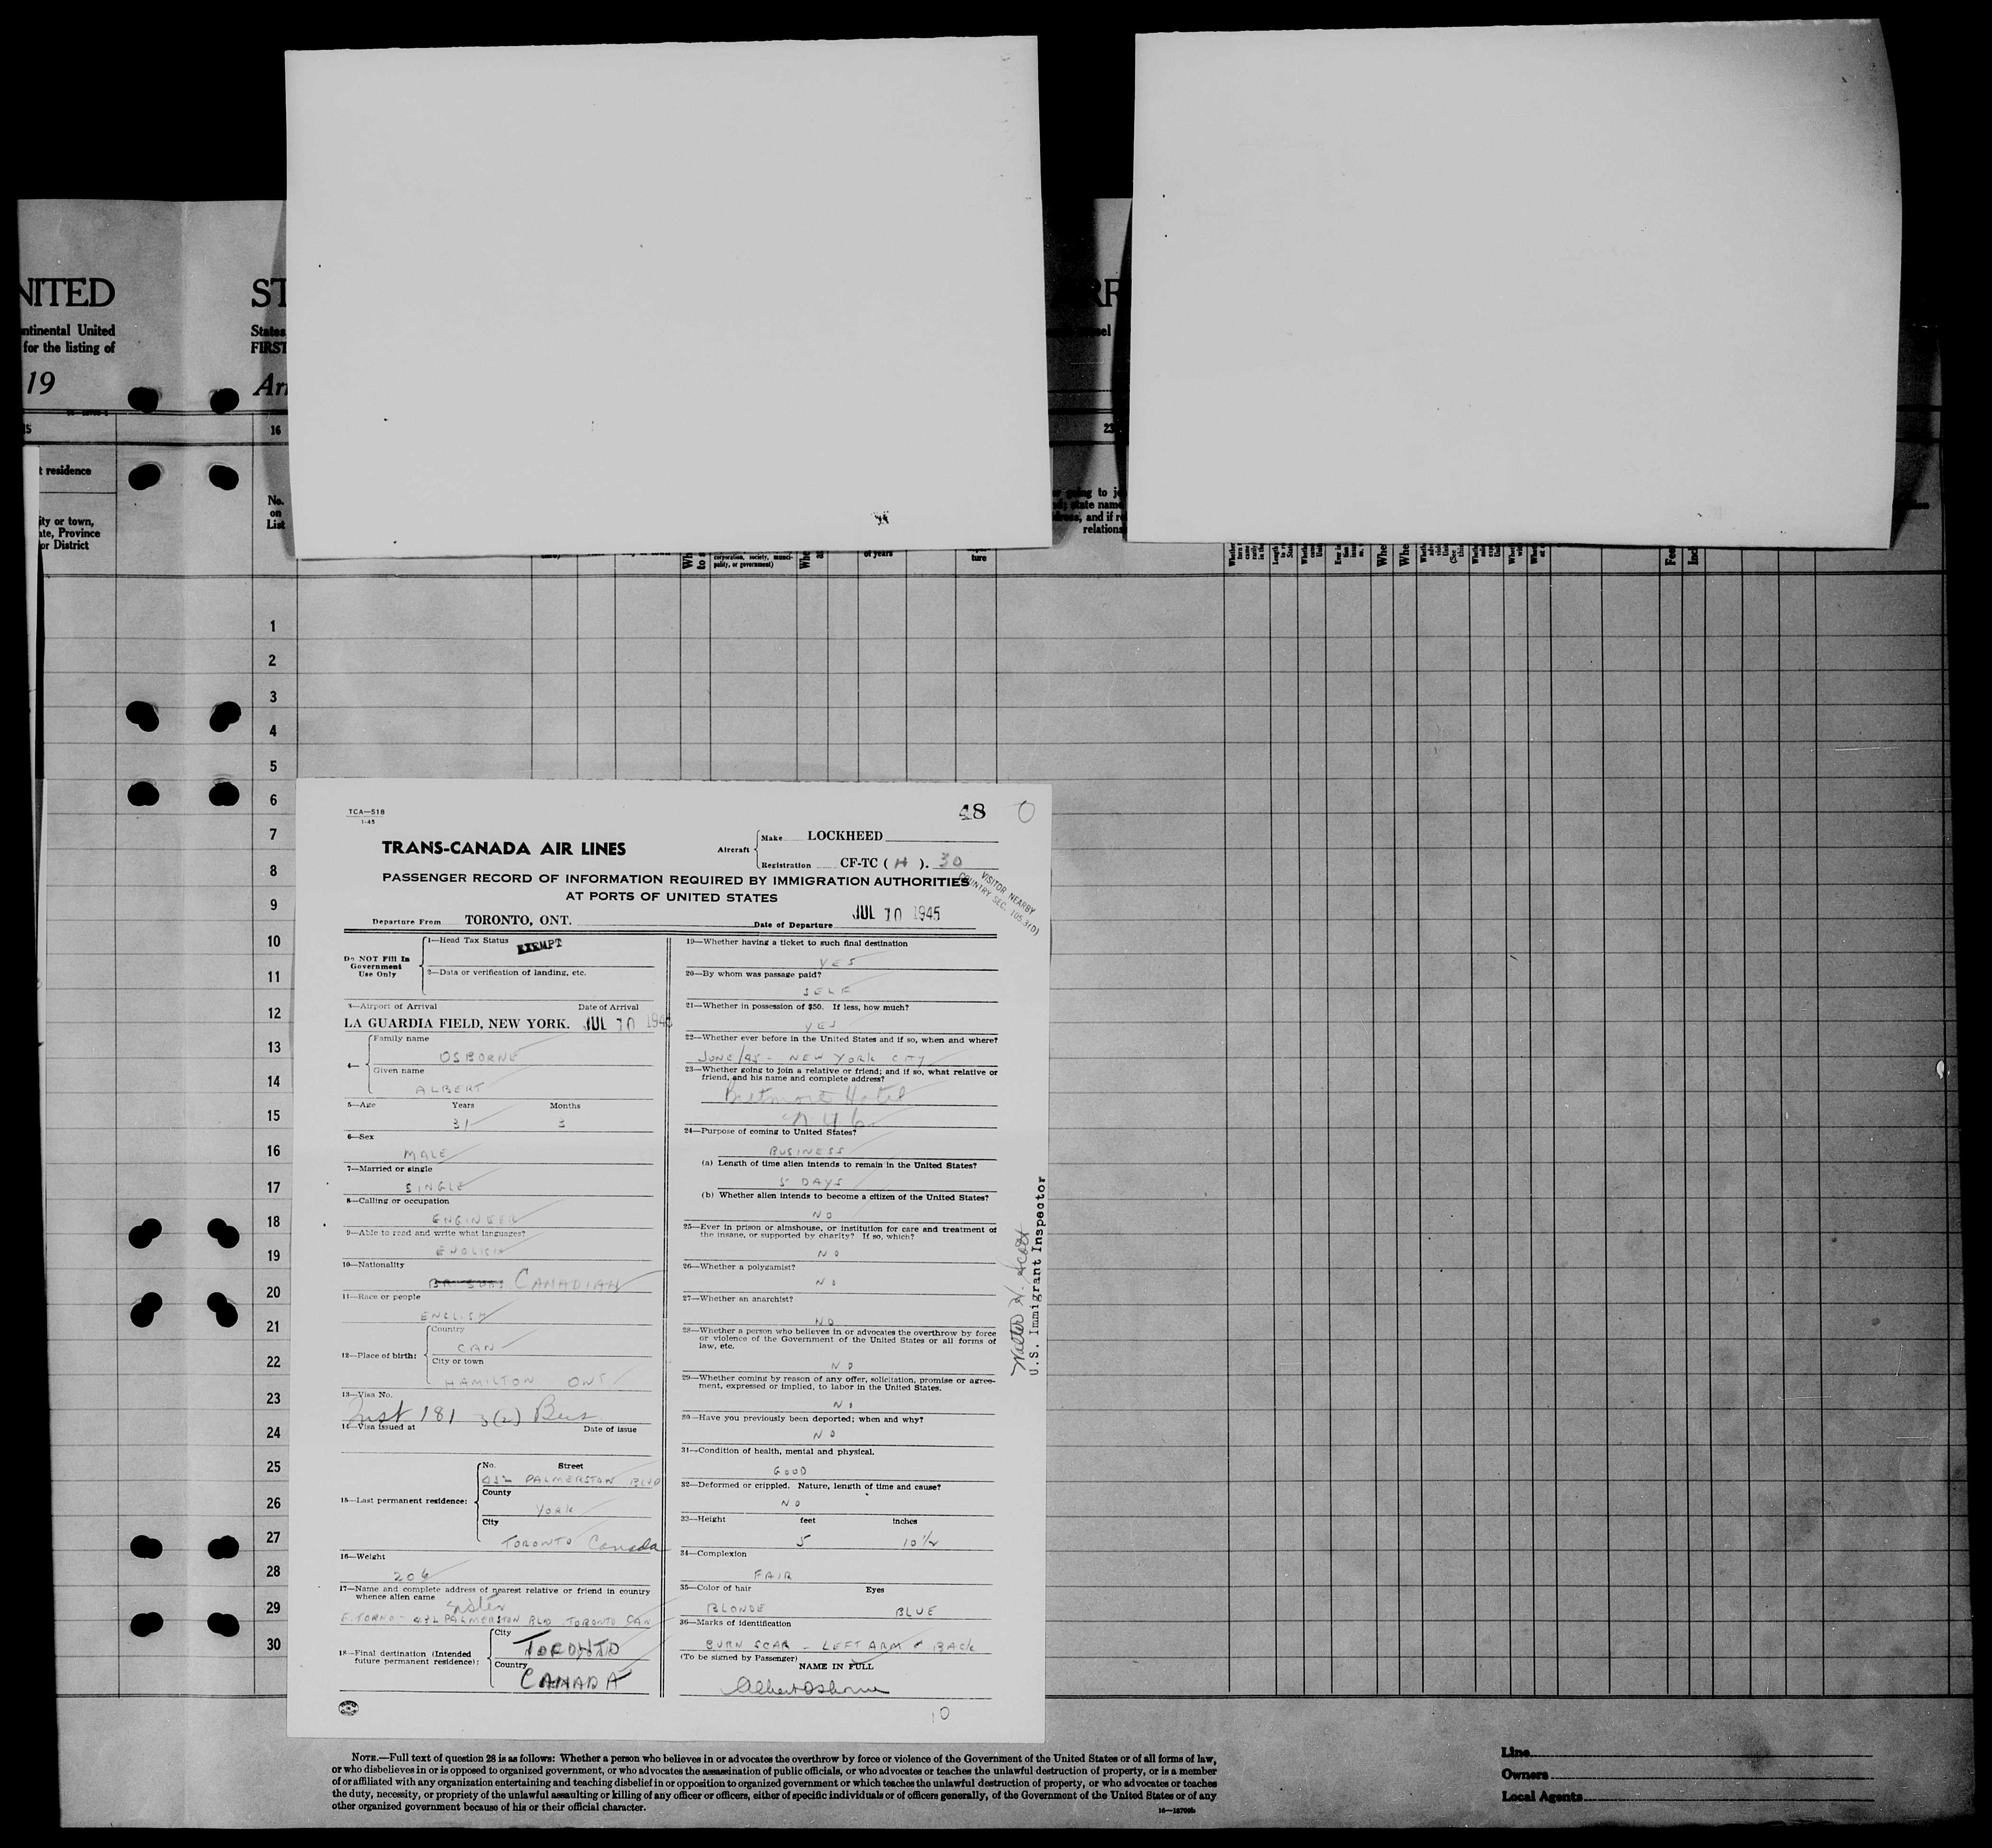 NITED
ntinental United
for the listing of
19
15
t residence
ity or town,
ate, Province
or District
ST
States
FIRST
Arr
16
No.
on
List
ARR
23
relations
corporation, society, munici-
pality, or government)
of years
ture
1
2
3
4
5
6
7
8
9
10
11
12
13
14
15
16
17
18
19
20
21
22
23
24
25
26
27
28
29
30
TCA—518
1-45
48
TRANS-CANADA AIR LINES
Aircraft
Make LOCKHEED
Registration CF-TC ( H ). 30
PASSENGER RECORD OF INFORMATION REQUIRED BY IMMIGRATION AUTHORITIES
AT PORTS OF UNITED STATES
VISITOR NEARBY
COUNTRY SEC. 105.3(D)
Departure From TORONTO, ONT. Date of Departure JUL 10 1945
Do NOT Fill In
Government
Use Only
1—Head Tax Status EXEMPT
2—Data or verification of landing, etc.
3—Airport of Arrival Date of Arrival
LA GUARDIA FIELD, NEW YORK. JUL 10 1945
4—
Family name
OSBORNE
Given name
ALBERT
5—Age Years Months
31 3
6—Sex
MALE
7—Married or single
SINGLE
8—Calling or occupation
ENGINEER
9—Able to read and write what languages?
ENGLISH
10—Nationality
BR SUBJ CANADIAN
11—Race or people
ENGLISH
12—Place of birth:
Country
CAN
City or town
HAMILTON ONT
13—Visa No.
181 3(2) Bus
14—Visa issued at Date of issue
15—Last permanent residence:
No. Street
432 PALMERSTON BLVD
County
YORK
City
TORONTO Canada
16—Weight
206
17—Name and complete address of nearest relative or friend in country
whence alien came
Sister
432 PALMERSTON BLVD TORONTO CAN
18—Final destination (Intended
future permanent residence):
City
TORONTO
Country
CANADA
19—Whether having a ticket to such final destination
YES
20—By whom was passage paid?
SELF
21—Whether in possession of $50. If less, how much?
YES
22—Whether ever before in the United States and if so, when and where?
JUNE/45 - NEW YORK CITY
23—Whether going to join a relative or friend; and if so, what relative or
friend, and his name and complete address?
Biltmore Hotel
N Y C
24—Purpose of coming to United States?
BUSINESS
(a) Length of time alien intends to remain in the United States?
5 DAYS
(b) Whether alien intends to become a citizen of the United States?
NO
25—Ever in prison or almshouse, or institution for care and treatment of
the insane, or supported by charity? If so, which?
NO
26—Whether a polygamist?
NO
27—Whether an anarchist?
NO
28—Whether a person who believes in or advocates the overthrow by force
or violence of the Government of the United States or all forms of
law, etc.
NO
29—Whether coming by reason of any offer, solicitation, promise or agree-
ment, expressed or implied, to labor in the United States.
NO
30—Have you previously been deported; when and why?
NO
31—Condition of health, mental and physical.
GOOD
32—Deformed or crippled. Nature, length of time and cause?
NO
33—Height feet inches
5 10½
34—Complexion
FAIR
35—Color of hair Eyes
BLONDE BLUE
36—Marks of identification
BURN SCAR - LEFT ARM & BACK
(To be signed by Passenger)
NAME IN FULL
Albert Osborne
10
Walter H. Scott
U.S. Immigrant Inspector
NOTE.—Full text of question 28 is as follows: Whether a person who believes in or advocates the overthrow by force or violence of the Government of the United States or of all forms of law,
or who disbelieves in or is opposed to organized government, or who advocates the assassination of public officials, or who advocates or teaches the unlawful destruction of property, or is a member
of or affiliated with any organization entertaining and teaching disbelief in or opposition to organized government or which teaches the unlawful destruction of property, or who advocates or teaches
the duty, necessity, or propriety of the unlawful assaulting or killing of any officer or officers, either of specific individuals or of officers generally, of the Government of the United States or of any
other organized government because of his or their official character.
Line
Owners
Local Agents